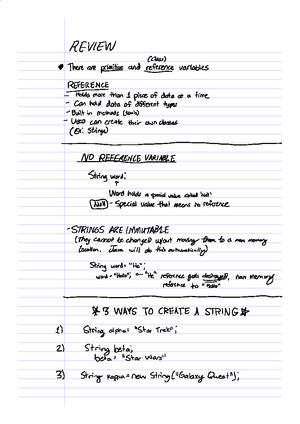 REVIEW
(class)
• There are primitive and reference variables
REFERENCE
- Holds more than 1 piece of data at a time
- Can hold data of different types
- Built in methods (tools)
- User can create their own classes
(Ex: Strings)
NO REFERENCE VARIABLE
String word;
↑
Word holds a special value called 'null'
Null - Special value that means no reference
- STRINGS ARE IMMUTABLE
(They cannot be changed w/out moving them to a new memory
location. Java will do this automatically)
String word = "Hi";
word = "Hello"; ← "Hi" reference gets destroyed, new memory
reference to "Hello"
* 3 WAYS TO CREATE A STRING *
1) String alpha = "Star Trek";
2) String beta;
beta = "Star Wars"
3) String kappa = new String("Galaxy Quest");